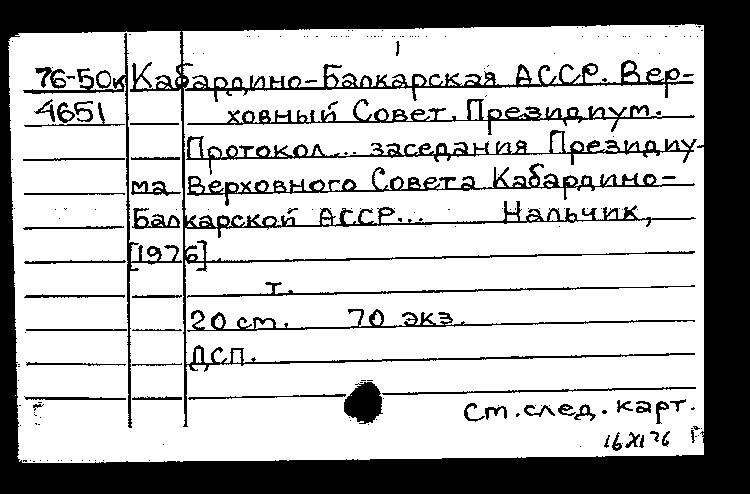 1
76-50к Кабардино-Балкарская АССР. Вер-
4651 ховный Совет. Президиум.
Протокол... заседания Президиу-
ма Верховного Совета Кабардино-
Балкарской АССР... Нальчик,
[1976].
т.
20 ст. 70 экз.
ДСП.
Cm. след. карт.
16 XI 76